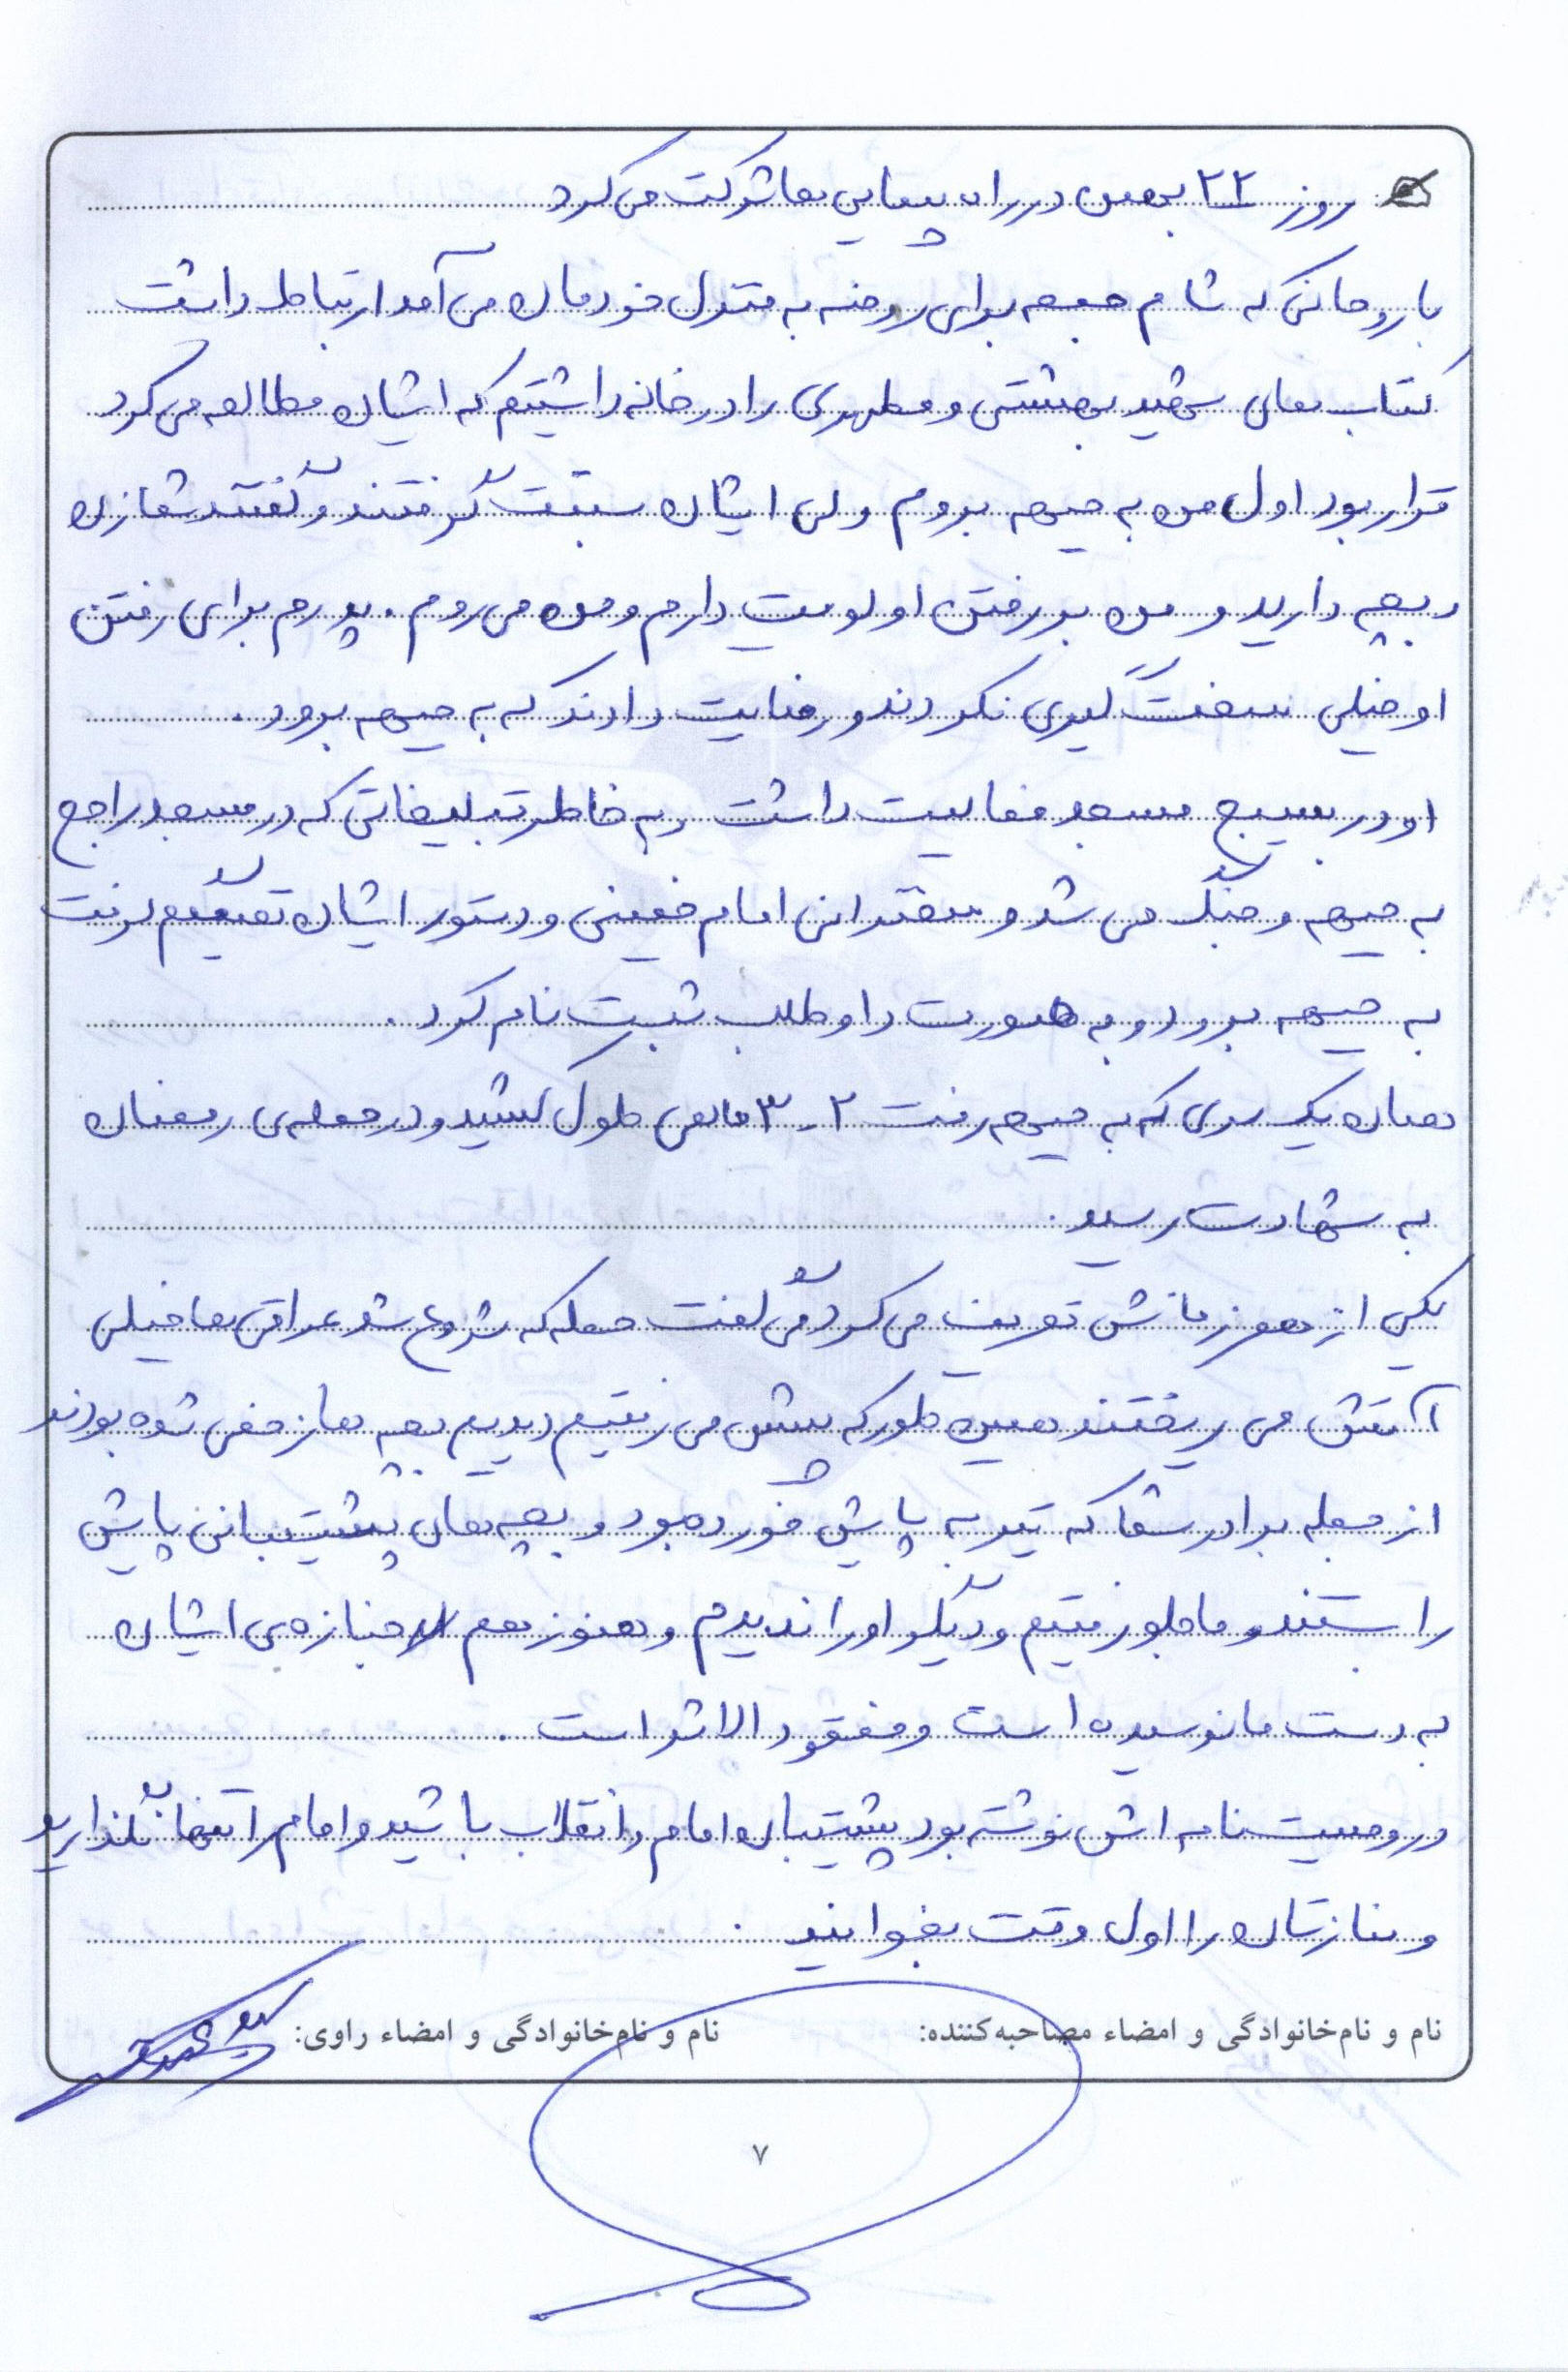 روز ۲۲ بهمن در راه پیمایی ها شرکت می کرد
با روحانی که شام جمعه برای روضه به منزل خودمان می آمد ارتباط داشت
کتاب های شهید بهشتی و مطهری را در خانه داشتیم که ایشان مطالعه می کرد
قرار بود اول من به جبهه بروم ولی ایشان سبقت گرفتند و گفتند شما زن
و بچه دارید و من بر رفتن اولویت دارم و من می روم. پدرم برای رفتن
او خیلی سخت گیری نکردند و رضایت دادند که به جبهه برود.
او در بسیج مسجد فعالیت داشت و به خاطر تبلیغاتی که در مسجد راجع
به جبهه و جنگ می شد و سخنرانی امام خمینی و دستور ایشان تصمیم گرفت
به جبهه برود و به صورت داوطلب ثبت نام کرد.
همان یک سری که به جبهه رفت ۲-۳ ماهی طول کشید و در حمله ی رمضان
به شهادت رسید.
یکی از همرزمانش تعریف می کرد می گفت حمله که شروع شد عراقی ها خیلی
آتش می ریختند همین طور که پیش می رفتیم دیدیم بچه ها زخمی شده بودند
از جمله برادر شما که تیر به پایش خورده بود و بچه های پشتیبانی پایش
را بستند و ما جلو رفتیم و دیگر او را ندیدم و هنوز هم جنازه ی ایشان
به دست ما نرسیده است و مفقود الاثر است.
در وصیت نامه اش نوشته بود پشتیبان امام و انقلاب باشید و امام را تنها نگذارید
و نمازتان را اول وقت بخوانید.
نام و نام‌خانوادگی و امضاء مصاحبه‌کننده: نام و نام‌خانوادگی و امضاء راوی:
۷